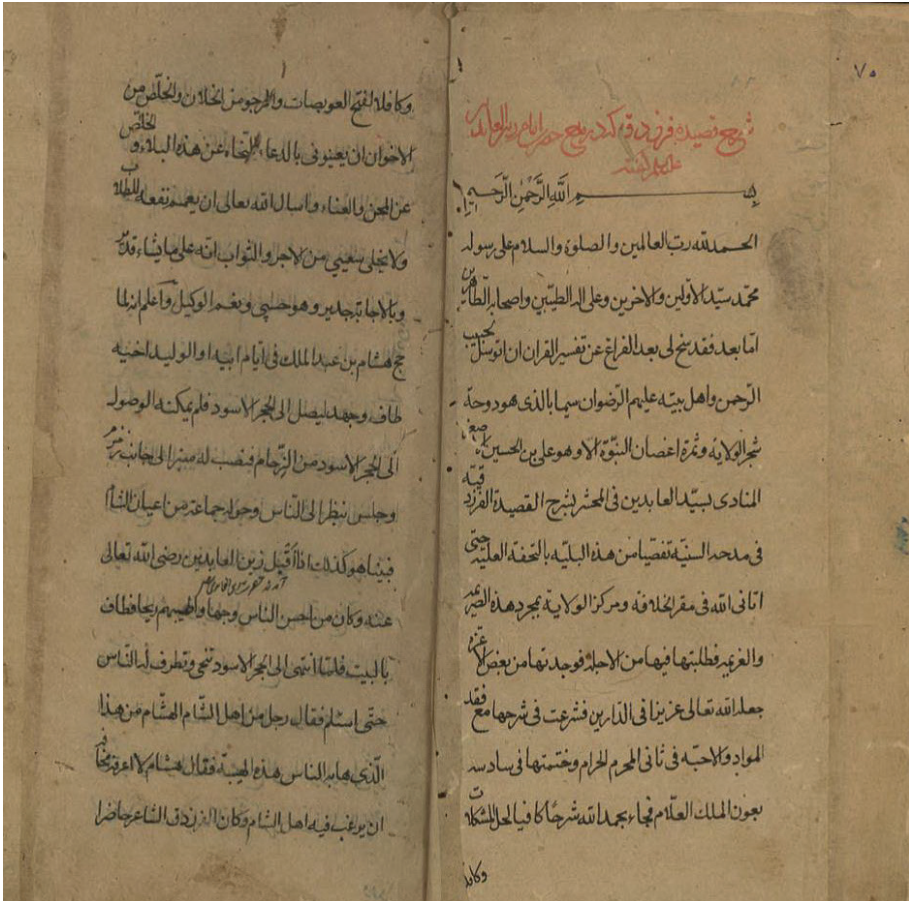 ٧٠
شرح قصيده فرزدق كه در مدح حضرت امام زين العابدين
عليه السلم گفته
بسم الله الرحمن الرحيم
الحمد لله رب العالمين والصلوة والسلام على رسوله
محمد سيّد الأولين والآخرين وعلى اله الطيّبين واصحابه الطّاهرين
امّا بعد فقد سنح لى بعد الفراغ عن تفسير القران ان اتوسّل بحبيب
الرّحمن واهل بيته عليهم الرّضوان سيما بالذى هو دوحة
شجر الولاية وثمرة اغصان النبّوة الا وهو على بن الحسين
المنادى بسيّد العابدين فى المحشر بشرح القصيدة الفرزدقيّة
فى مدحه السنيّة تفصّيا من هذه البليّه بالتحفة العليّة حتّى
اتانى الله فى مقر الخلافة ومركز الولاية بمجرد هذه
والغريمه فطلبتها فيها من الاجلّة فوجدتها من بعض الاعزه
جعله الله تعالى عزيزا فى الدّارين فشرعت فى شرحها مع فقد
المواد والاحبّه فى ثانى المحرم الحرام وختمتها فى سادسه
بعون الملك العلّام فجاء بحمد الله شرحًا كافيا لحل المشكلات
وكافلا
وكافلا لفتح العويصات والمرجو من الخلان والخلّص من
الاخوان ان يعينونى بالدعاء للنّجاء عن هذه البلاء والخلاص
عن المحن والعناء واسال الله تعالى ان يعمم نفعه للطلاب
ولا يخلى سعيي من الاجر والثواب انّه على ما يشاء قدير
وبالاجابة جدير وهو حسبى ونعم الوكيل واعلم انه لما
حج هشام بن عبد الملك فى ايّام ابيه او الوليد اخيه
طاف وجهد ليصل الى الحجر الاسود فلم يمكنه الوصول
الى الحجر الاسود من الزّحام فنصب له منبر الى جانب زمزم
وجلس ينظر الى النّاس وحوله جماعة من اعيان الشام
فبينا هو كذلك اذ أقبل زين العابدين رضى الله تعالى
عنه وكان من احسن الناس وجها واطيبهم ريحا فطاف
بالبيت فلمّا انتهى الى الحجر الاسود تنحى وتطرف له النّاس
حتّى استلم فقال رجل من اهل الشّام لهشام من هذا
الّذى هابه الناس هذه الهيبة فقال هشام لا اعرفه مخافة
ان يرغب فيه اهل الشام وكان الفرزدق الشاعر حاضرا